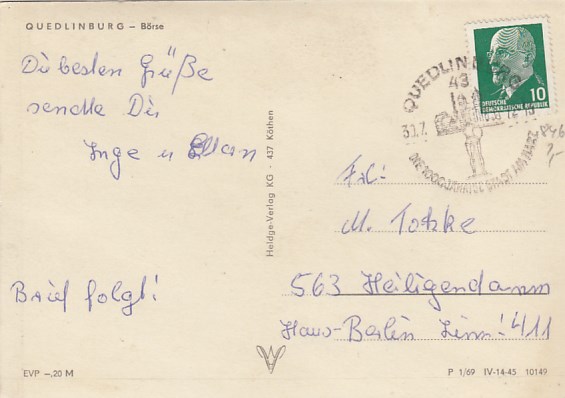 QUEDLINBURG — Börse
Die besten Grüße
sendte Dir
Inge u Eltern
Brief folgt!
EVP —,20 M
Heldge-Verlag KG · 437 Köthen
QUEDLINBURG
43
30.7.
DIE 1000JÄHRIGE STADT AM HARZ
10
DEUTSCHE
DEMOKRATISCHE REPUBLIK
Frl:
M. Totzke
563 Heiligendamm
Haus-Berlin Zim: 411
P 1/69 IV-14-45 10149